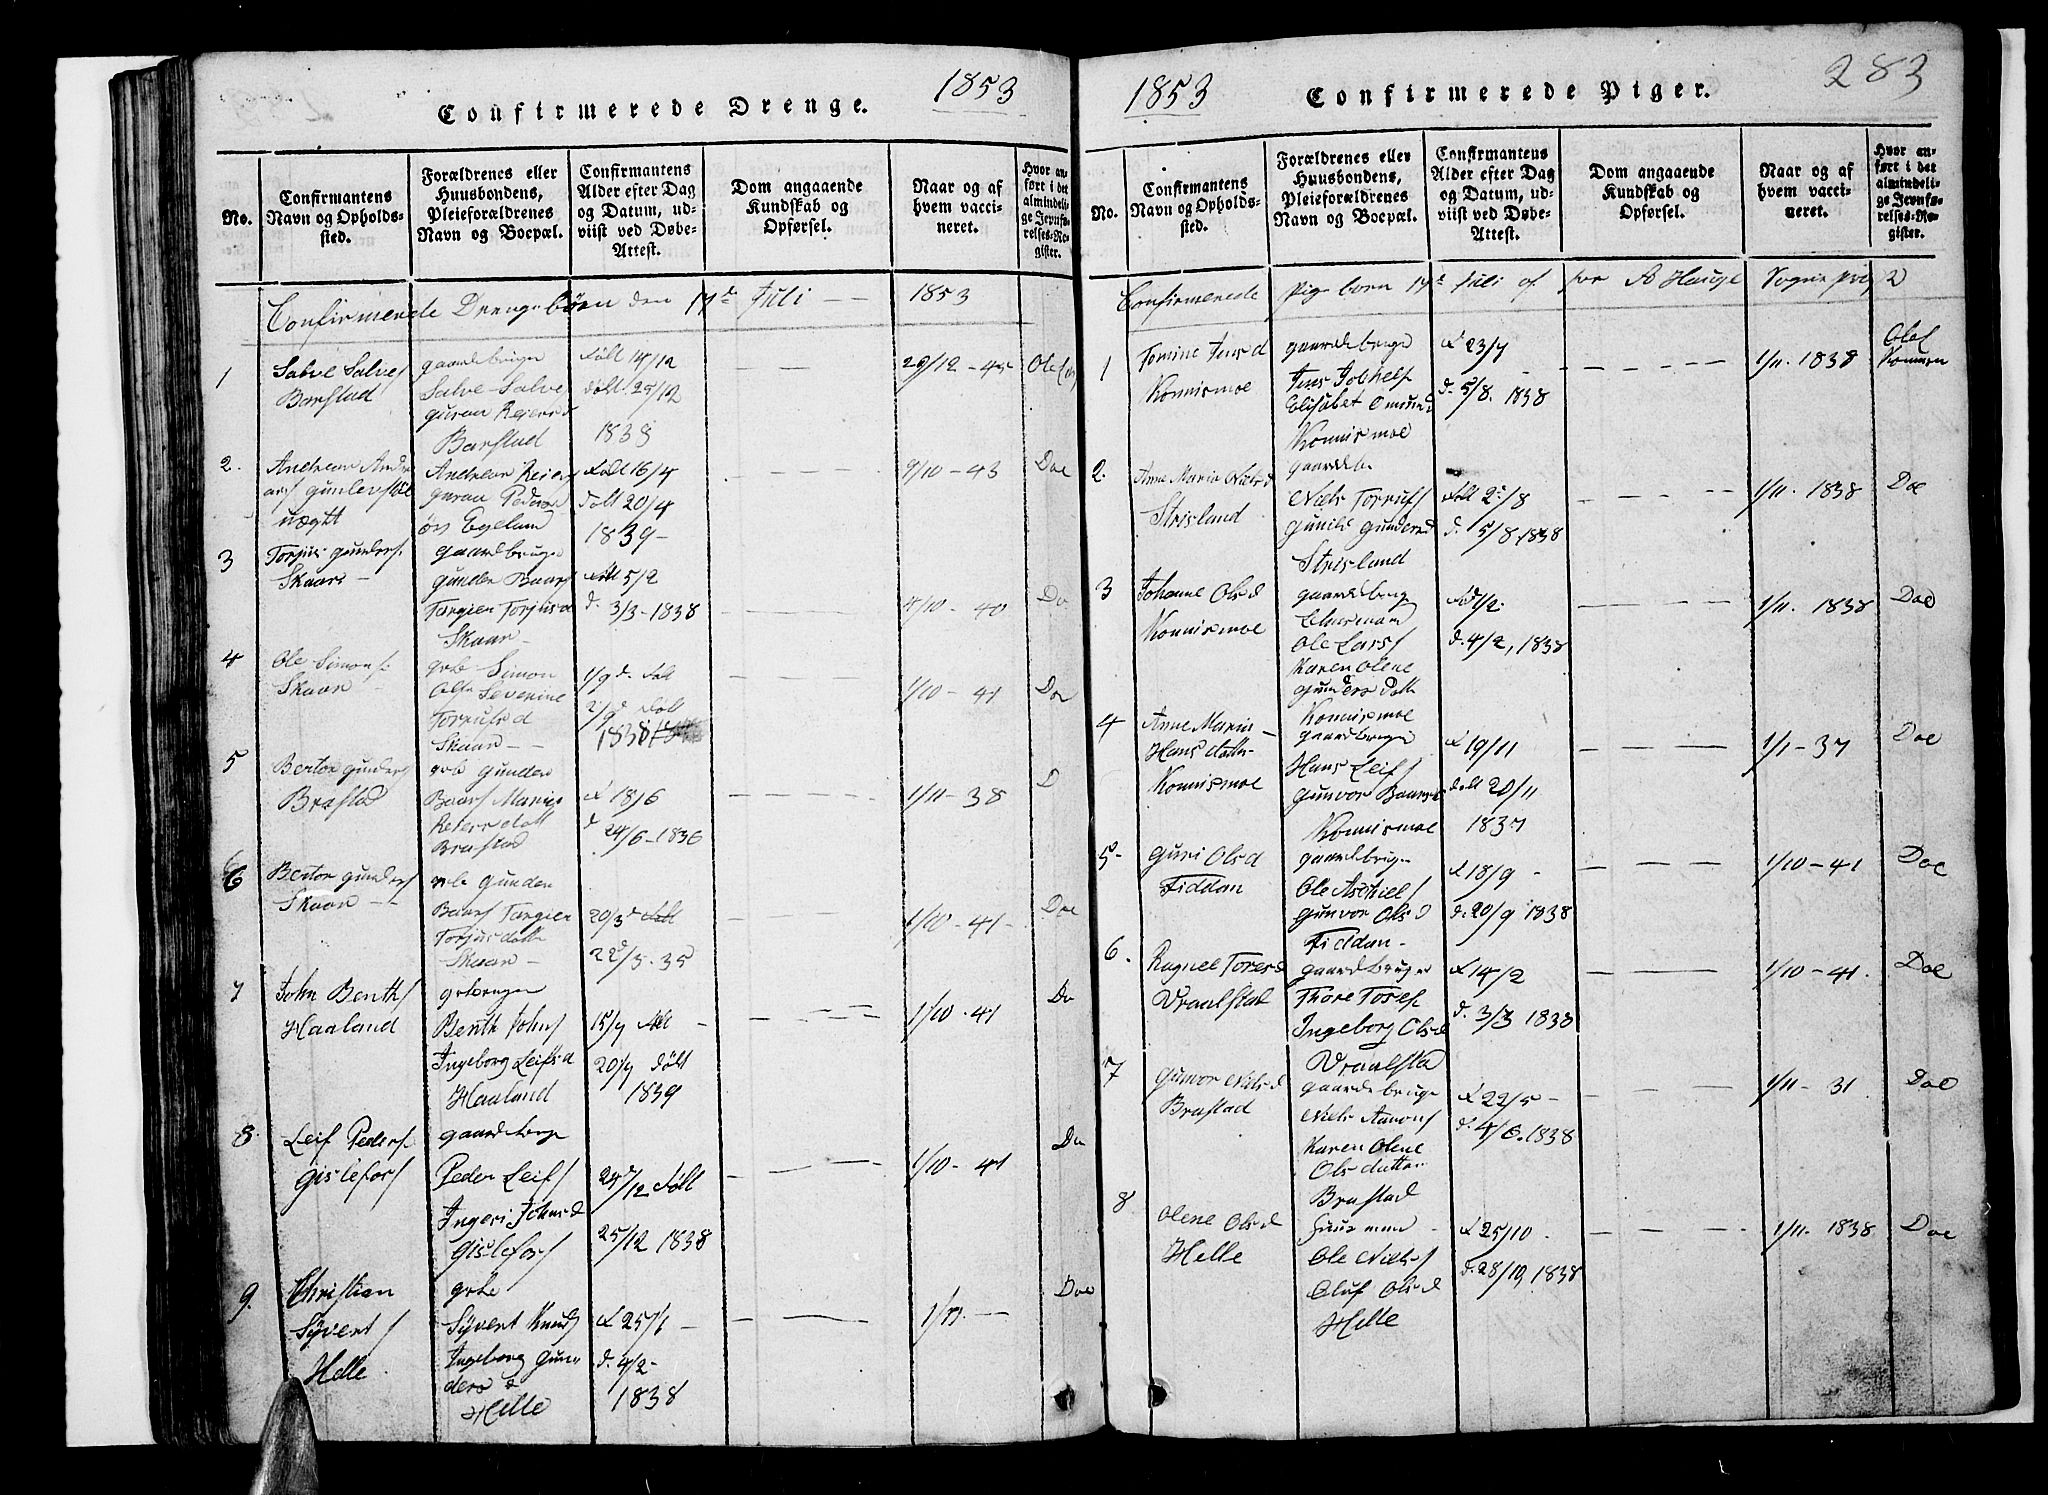 1853
Confirmerede Drenge.
No.
Confirmantens Navn og Opholdssted.
Forældrenes eller Huusbondens, Pleieforældrenes Navn og Boepæl.
Confirmantens Alder efter Dag og Datum, udviist ved Døbe-Attest.
Dom angaaende Kundskab og Opførsel.
Naar og af hvem vaccineret.
Hvor anført i det almindelige Jevnførelses-Register.
Confirmerede Drengebørn den 17d Juli — — 1853
1
Salve Salves
Barstad
gaardbruger
Salve Salves
Guroe Reiersd
Barstad
født 14/12
døbt 25/12
1838
29/12 - 45
2.
Andreas Andr
ars
Andreas Reiers
Egeland
født 16/4
døbt 20/4
1839 -
9/10 - 43
Do
3
Torjus Gunders.
Skaar -
gaardbruger
Gunder Baars
Targier Torjusd
Skaar -
født 5/2
d. 3/3 - 1838
4/10 - 40
Do
4
Ole Simons.
Skaar -
grbr Simon
Severine
Torrufsd
Skaar - -
1/9 d født
2/9 d døbt
1838
1/10 - 41
Do
5
Berton Gunders
Brastad
grbr Gunder
Baars Marie
Reiersdatt
Brastad
f 18/6
d 24/6 - 1836
1/11 - 38
D
6
Bertor Gunders
Skaar - -
grbr Gunder
Baars Targier
Torjusdatt
Skaar -
20/3 d født
22d/3. 35
1/10 - 41 -
Do
7
John Benths
Haaland
grbruger
Benth Johns
Ingeborg Leifsd
Haaland
15/7 født -
20/7 døbt
1839
1/10 - 41
Do
8.
Leif Peders
Gislefors
gaardbruge
Peder Leifs
Ingeri Johnsd
Gislefors
24/12 født
25/12 1838
1/10 - 41
Do
9.
Christian
Syvert
Helle
grbr
Syvert Knuds
Ingeborg Gun
dersd
Helle
f 25/1 -
d. 4/2 -
1838
1/11. —
Doe
1853
Confirmerede Piger.
283
No.
Confirmantens Navn og Opholdssted.
Forældrenes eller Huusbondens, Pleieforældrenes Navn og Boepæl.
Confirmantens Alder efter Dag og Datum, udviist ved Døbe-Attest.
Dom angaaende Kundskab og Opførsel.
Naar og af hvem vaccineret.
Hvor anført i det almindelige Jevnførelses-Register.
Confirmerede Pigeborn 17d Juli af A Hauge Sognepr
1
Tomine Jensd
Konnismoe
gaardbruge
Elisabet Omundd
Konnismoe
f 23/7
d. 5/8. 1838
1/11. 1838
2.
Anne Maria Nielsd
Strisland
gaardbr
Niels Torrufs
Gunild Gundersd
Strisland
født 2d/8
d. 5/8 1838
1/11. 1838
Doe
3
Johanne Olsd
Konnismoe
gaardbruge
Lehnsmand
Ole Lars
Karen Olene
Gundersdatt
Konnismoe
d. 4/2, 1838
1/11. 1838
Doe
4
Anne Maria
Hansdatt
Konnismoe
gaardbruge
Hans Leifs
Gunvor Baarsd
Konnismoe
f 19/11
døbt 20/11
1837
1/1 - 37
Doe
5-
Guri Olsd
Fiddan
gaardbruge
Ole Aschiels
Gunvor Olsd
Fiddan -
f 18/9 -
d. 20/9 1838
1/10 - 41
Doe
6.
Ragnel Toresd
Vraalstad
gaardbruger
Thore Tores
Ingeborg Olsd
Vraalsta
f 14/2
d. 3/3 1838
1/10 - 41.
Doe
7
Gunvor Nielsd
Brastad
gaardbruge
Niels Aanons
Karen Olene
Olsdatter
Brastad
f 22/5 -
d. 4/6. 1838
1/11 - 31
Doe
8
Olene Olsd
Helle
Huusmand
Ole Niels
Oluf Olsd
Helle
f 25/10.
d. 28/10, 1838
1/11. 1838
Doe